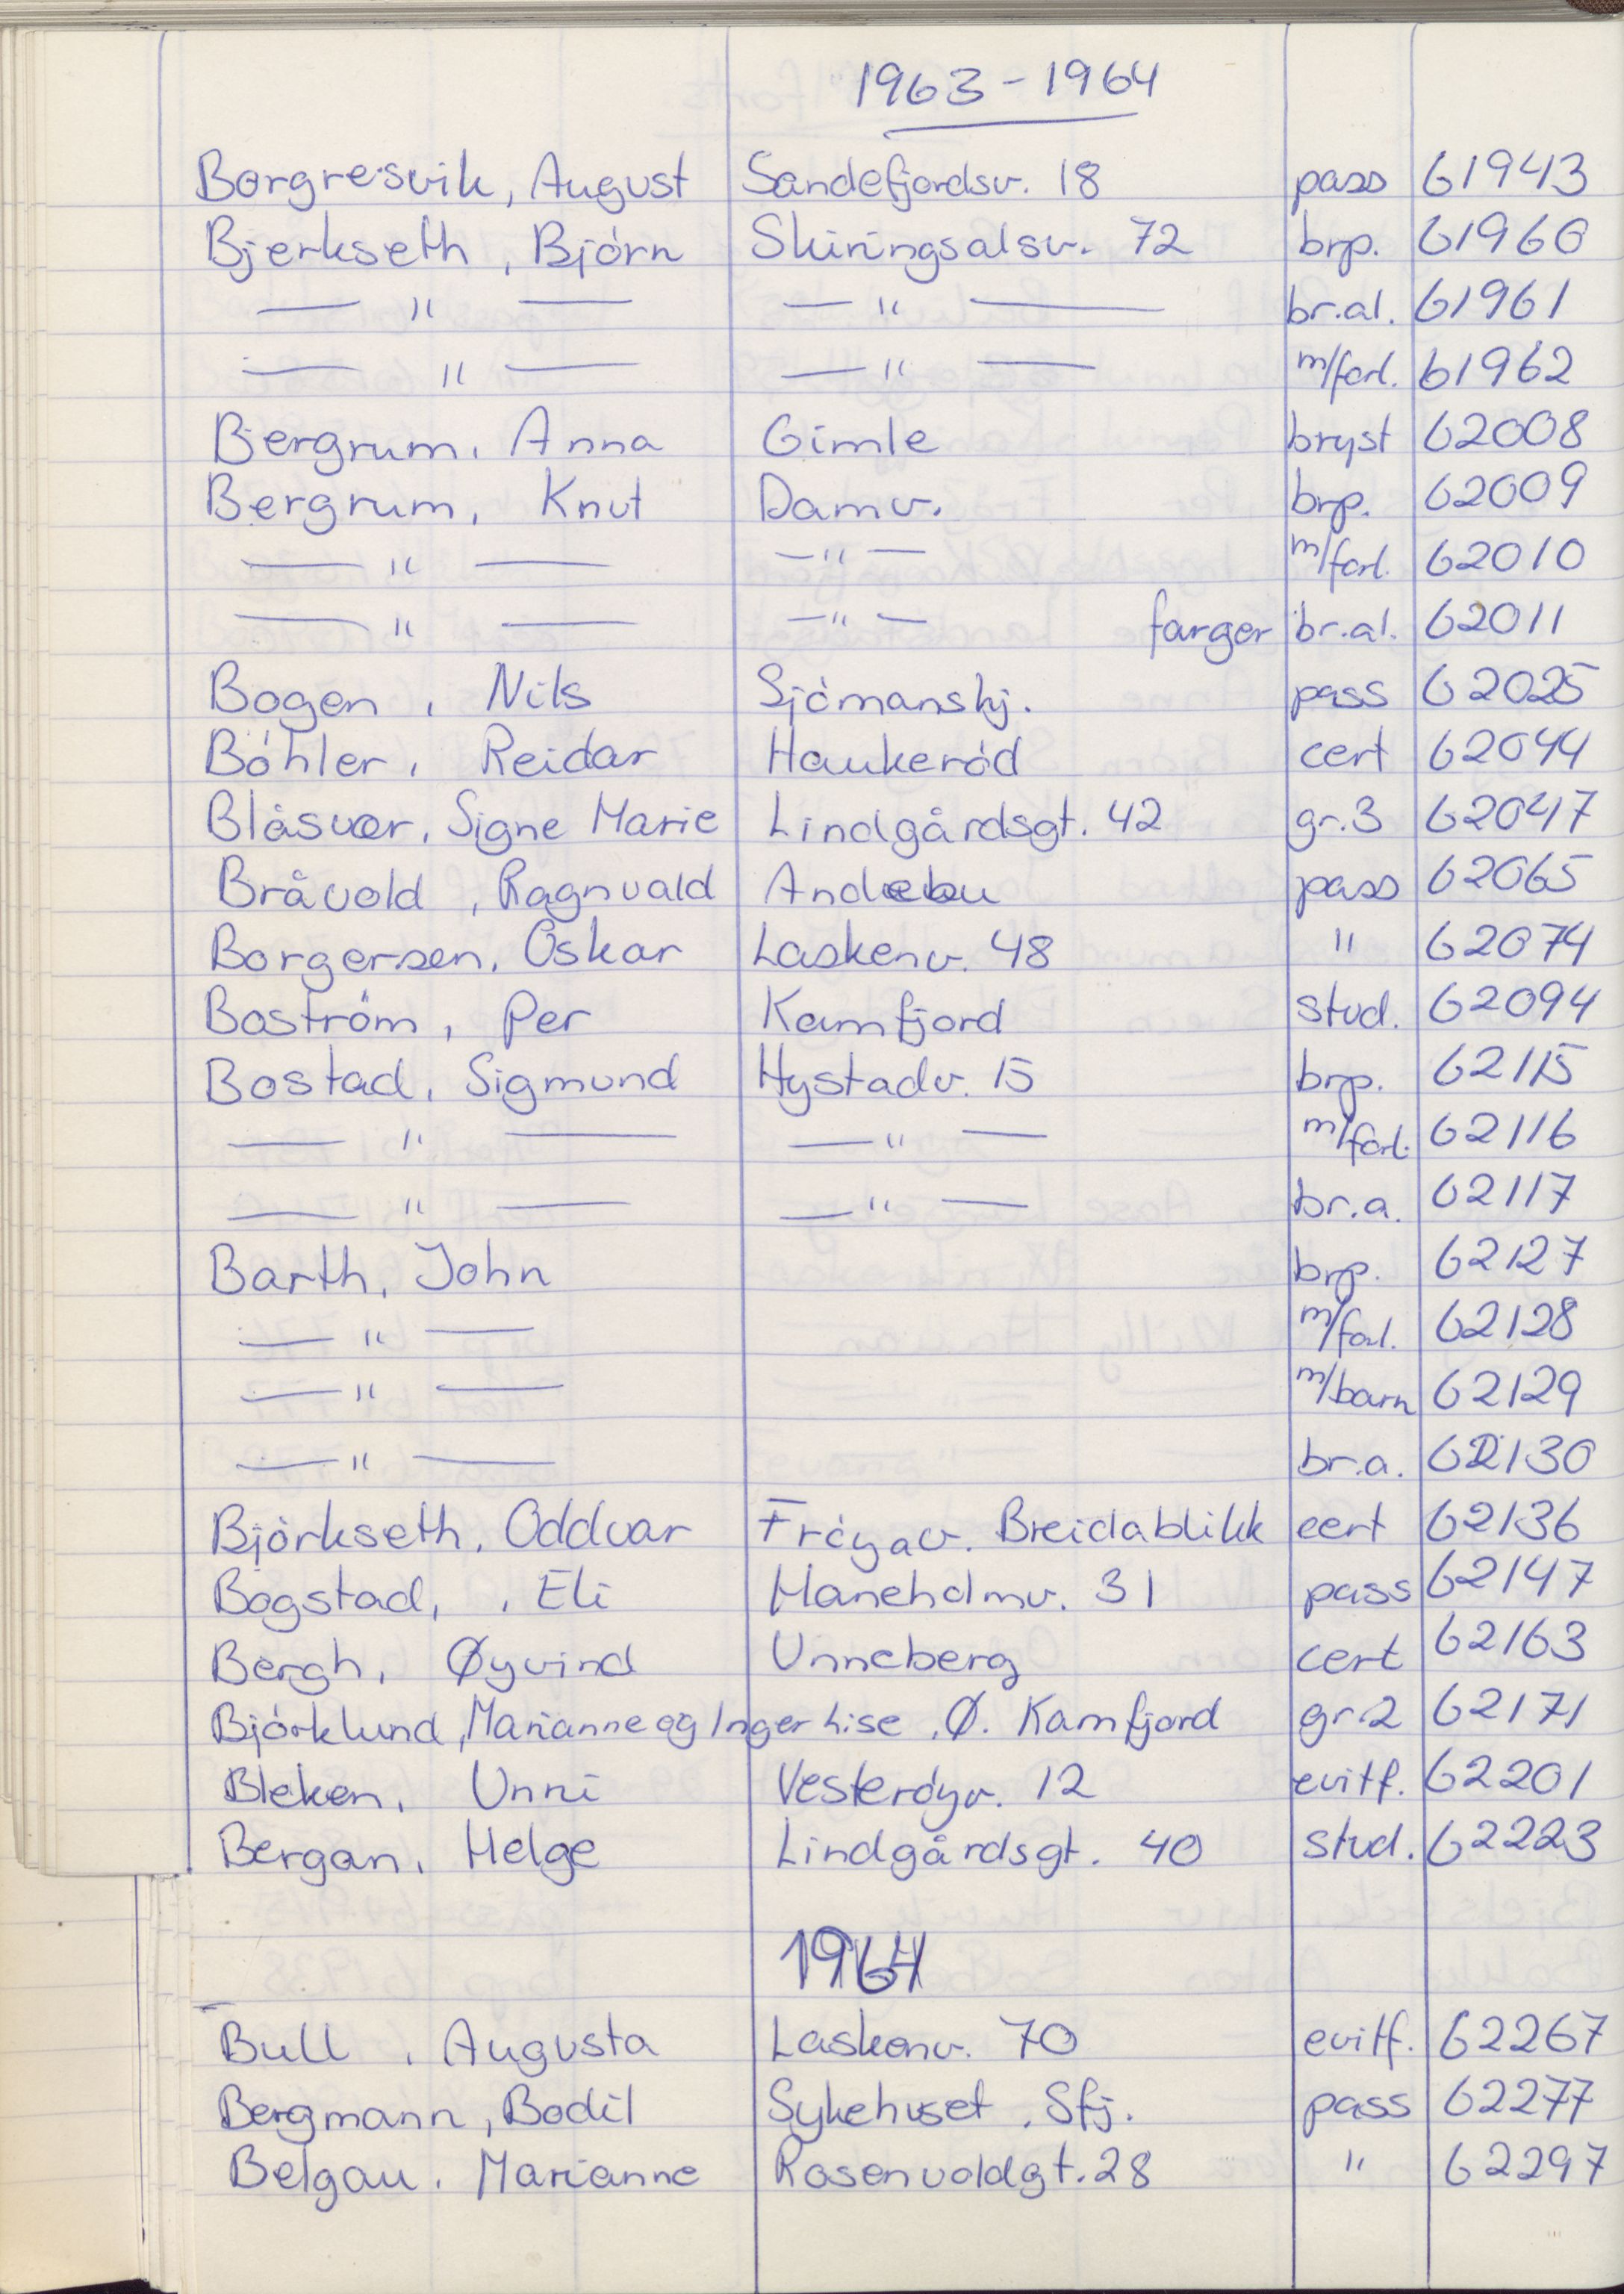 1963 - 1964
Borgresvik, August Sandefjordsv. 18 pass 61943
Bjerkseth, Björn Skiringsalsv. 72 brp. 61960
— " — — " — br.al. 61961
— " — — " — m/forl. 61962
Bergrum, Anna Gimle bryst 62008
Bergrum, Knut Damv. brp. 62009
— " — — " — m/forl. 62010
— " — — " — farger br.al. 62011
Bogen, Nils Sjömanskj. pass 62025
Böhler, Reidar Haukeröd cert 62044
Blåsvær, Signe Marie Lindgårdsgt. 42 gr.3 62047
Bråvold, Ragnvald Andebu pass 62065
Borgersen, Oskar Laskenv. 48 " 62074
Boström, Per Kamfjord stud. 62094
Bostad, Sigmund Hystadv. 15 brp. 62115
— " — — " — m/forl. 62116
— " — — " — br.a. 62117
Barth, John brp. 62127
— " — m/forl. 62128
— " — m/barn 62129
— " — br.a. 62130
Björkseth, Oddvar Fröyav. Breidablikk cert 62136
Bögstad, . Eli Maneholmv. 31 pass 62147
Bergh, Øyvind Unneberg cert 62163
Björklund, Marianne og Inger Lise, Ø. Kamfjord gr.2 62171
Bleken, Unni Vesteröyv. 12 evitf. 62201
Bergan, Helge Lindgårdsgt. 40 stud. 62223
1964
Bull, Augusta Laskenv. 70 evitf. 62267
Bergmann, Bodil Sykehuset, Sfj. pass 62277
Belgau, Marianne Rosenvoldgt. 28 " 62297